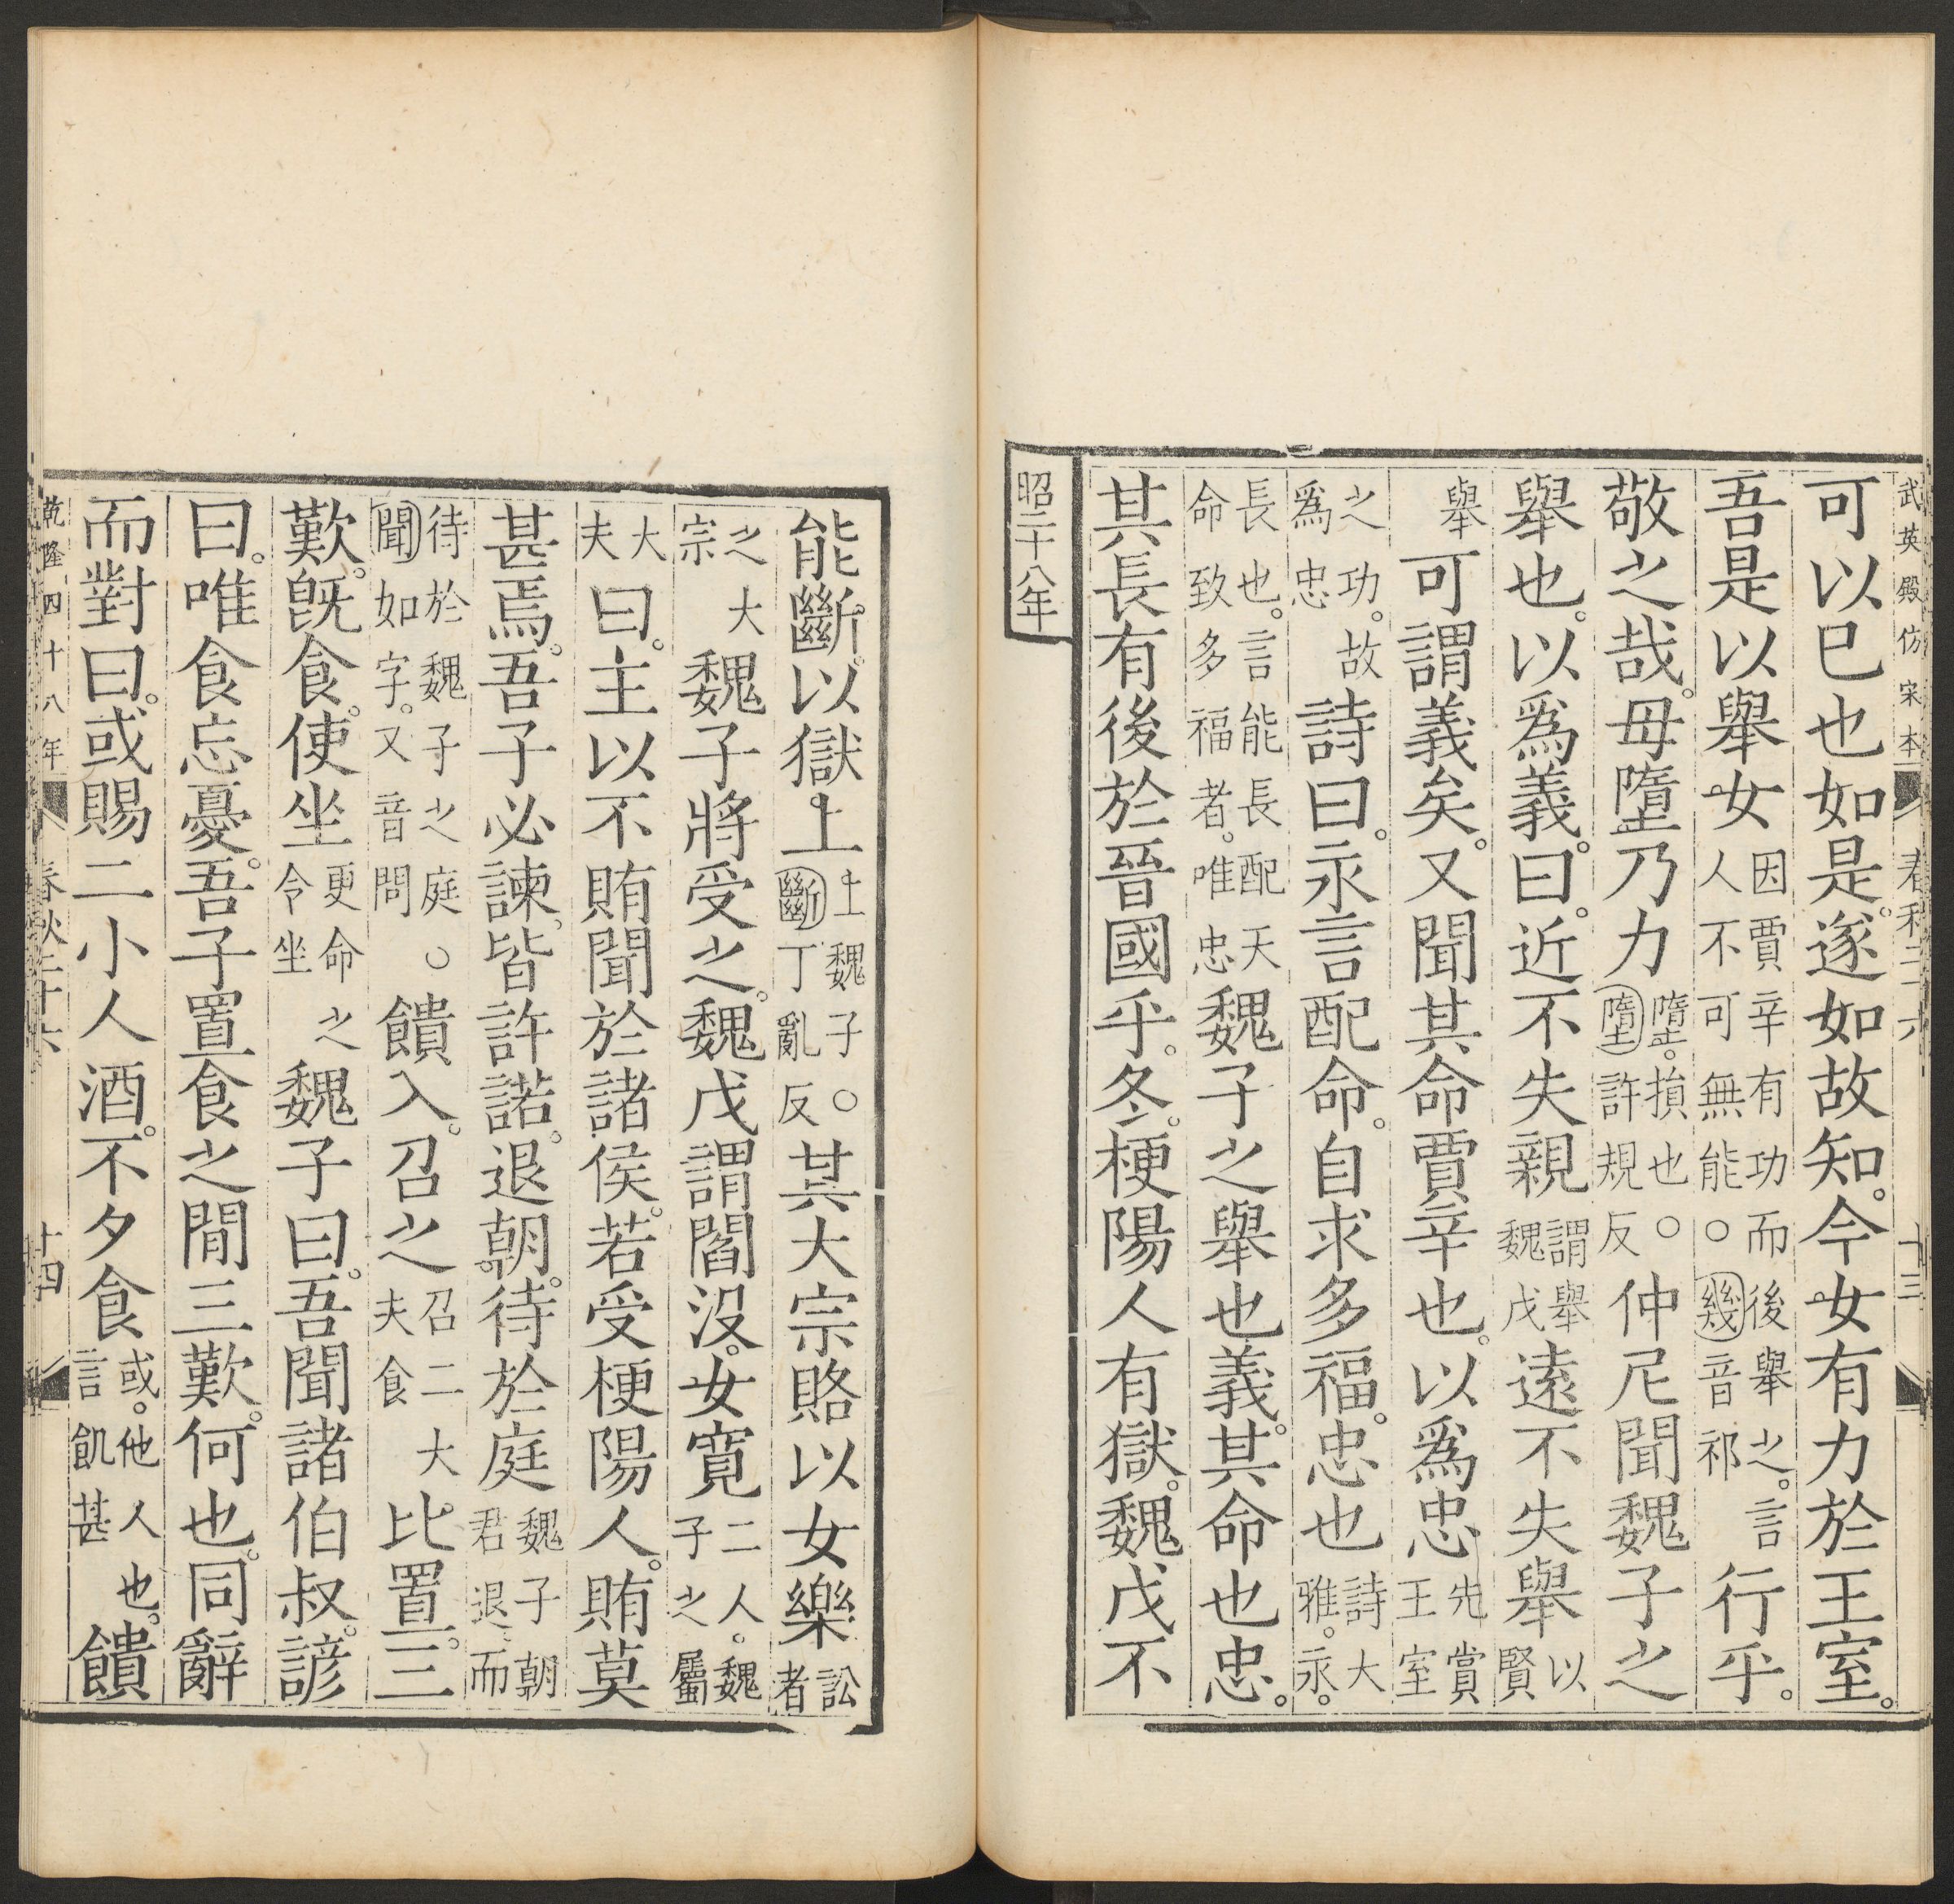 武英殿仿宋本 春秋二十六 十三
可以巳也如是。遂如故知。今女有力於王室。
吾是以舉女因賈辛有功而後舉之。言人不可無能○幾音祁行乎。
敬之哉。毋墮乃力墮。損也○墮許規反仲尼聞魏子之
舉也。以爲義。曰。近不失親謂舉魏戊遠不失舉以賢
舉可謂義矣。又聞其命賈辛也。以爲忠先賞王室
之功。故爲忠詩曰。永言配命。自求多福。忠也詩大雅。永。
長也。言能長配天命致多福者。唯忠魏子之舉也義。其命也忠。
其長有後於晉國乎。冬。梗陽人有獄。魏戊不
昭二十八年
能斷。以獄上上魏子○斷丁亂反其大宗賂以女樂訟者
之大宗魏子將受之。魏戊謂閻沒。女寬二人。魏子之屬
大夫曰。主以不賄聞於諸侯。若受梗陽人。賄莫
甚焉。吾子必諫。皆許諾。退朝。待於庭魏子朝君退。而
待於魏子之庭○聞如字。又音問饋入。召之召二大夫食比置。三
歎。旣食。使坐更命之令坐魏子曰。吾聞諸伯叔。諺
曰。唯食忘憂。吾子置食之閒三歎。何也。同辭
而對曰。或賜二小人酒。不夕食或。他人也。言飢甚饋
乾隆四十八年 春秋二十六 十四